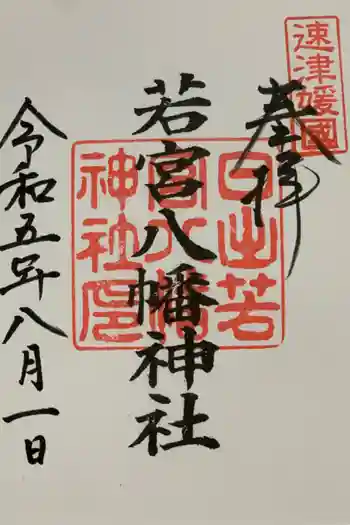 速津媛國
奉拝
若宮八幡神社
日出若宮八幡神社印
令和五年八月一日